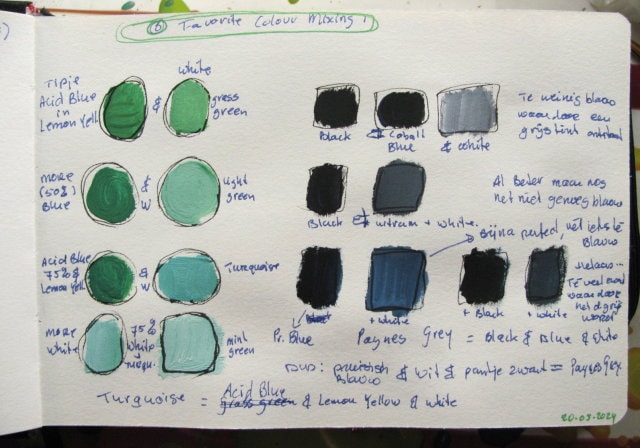 ⑥ Favorite Colour Mixing!
Tipje
Acid Blue
in
Lemon Yell
&
white
grass
green
more
(50%)
Blue
&
W
light
green
Acid Blue
75% &
Lemon Yell
&
W
Turquoise
more
white
75%
white
+
turqu.
mint
green
Black
& Cobalt
Blue
& White
Te weinig blauw
waardoor een
grijstint ontstaat
Black & ultram + white.
Al beter maar nog
net niet genoeg blauw
Bijna perfect, net iets te
Blauw
Pr. Blue
+ White
+ Black
+ White
Helaas...
Te veel zwart
waardoor
het d.grijs
wordt
Paynes Grey = Black & Blue & White
Dus: pruisisch
Blauw
& wit & puntje zwart = Paynes Grey.
Turquoise = Acid Blue
grass green & Lemon Yellow & white
20-03-2024